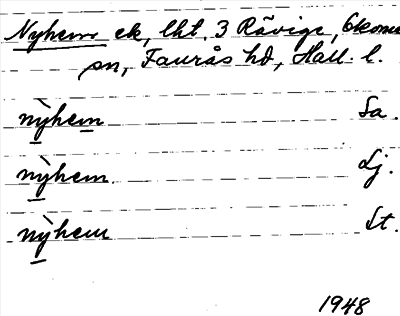 Nyhem ek, lht. 3 Rävige, Okome
sn, Faurås hd, Hall. l.
nỳhem Sa.
nỳhem. Lj.
nỳhem St.
1948